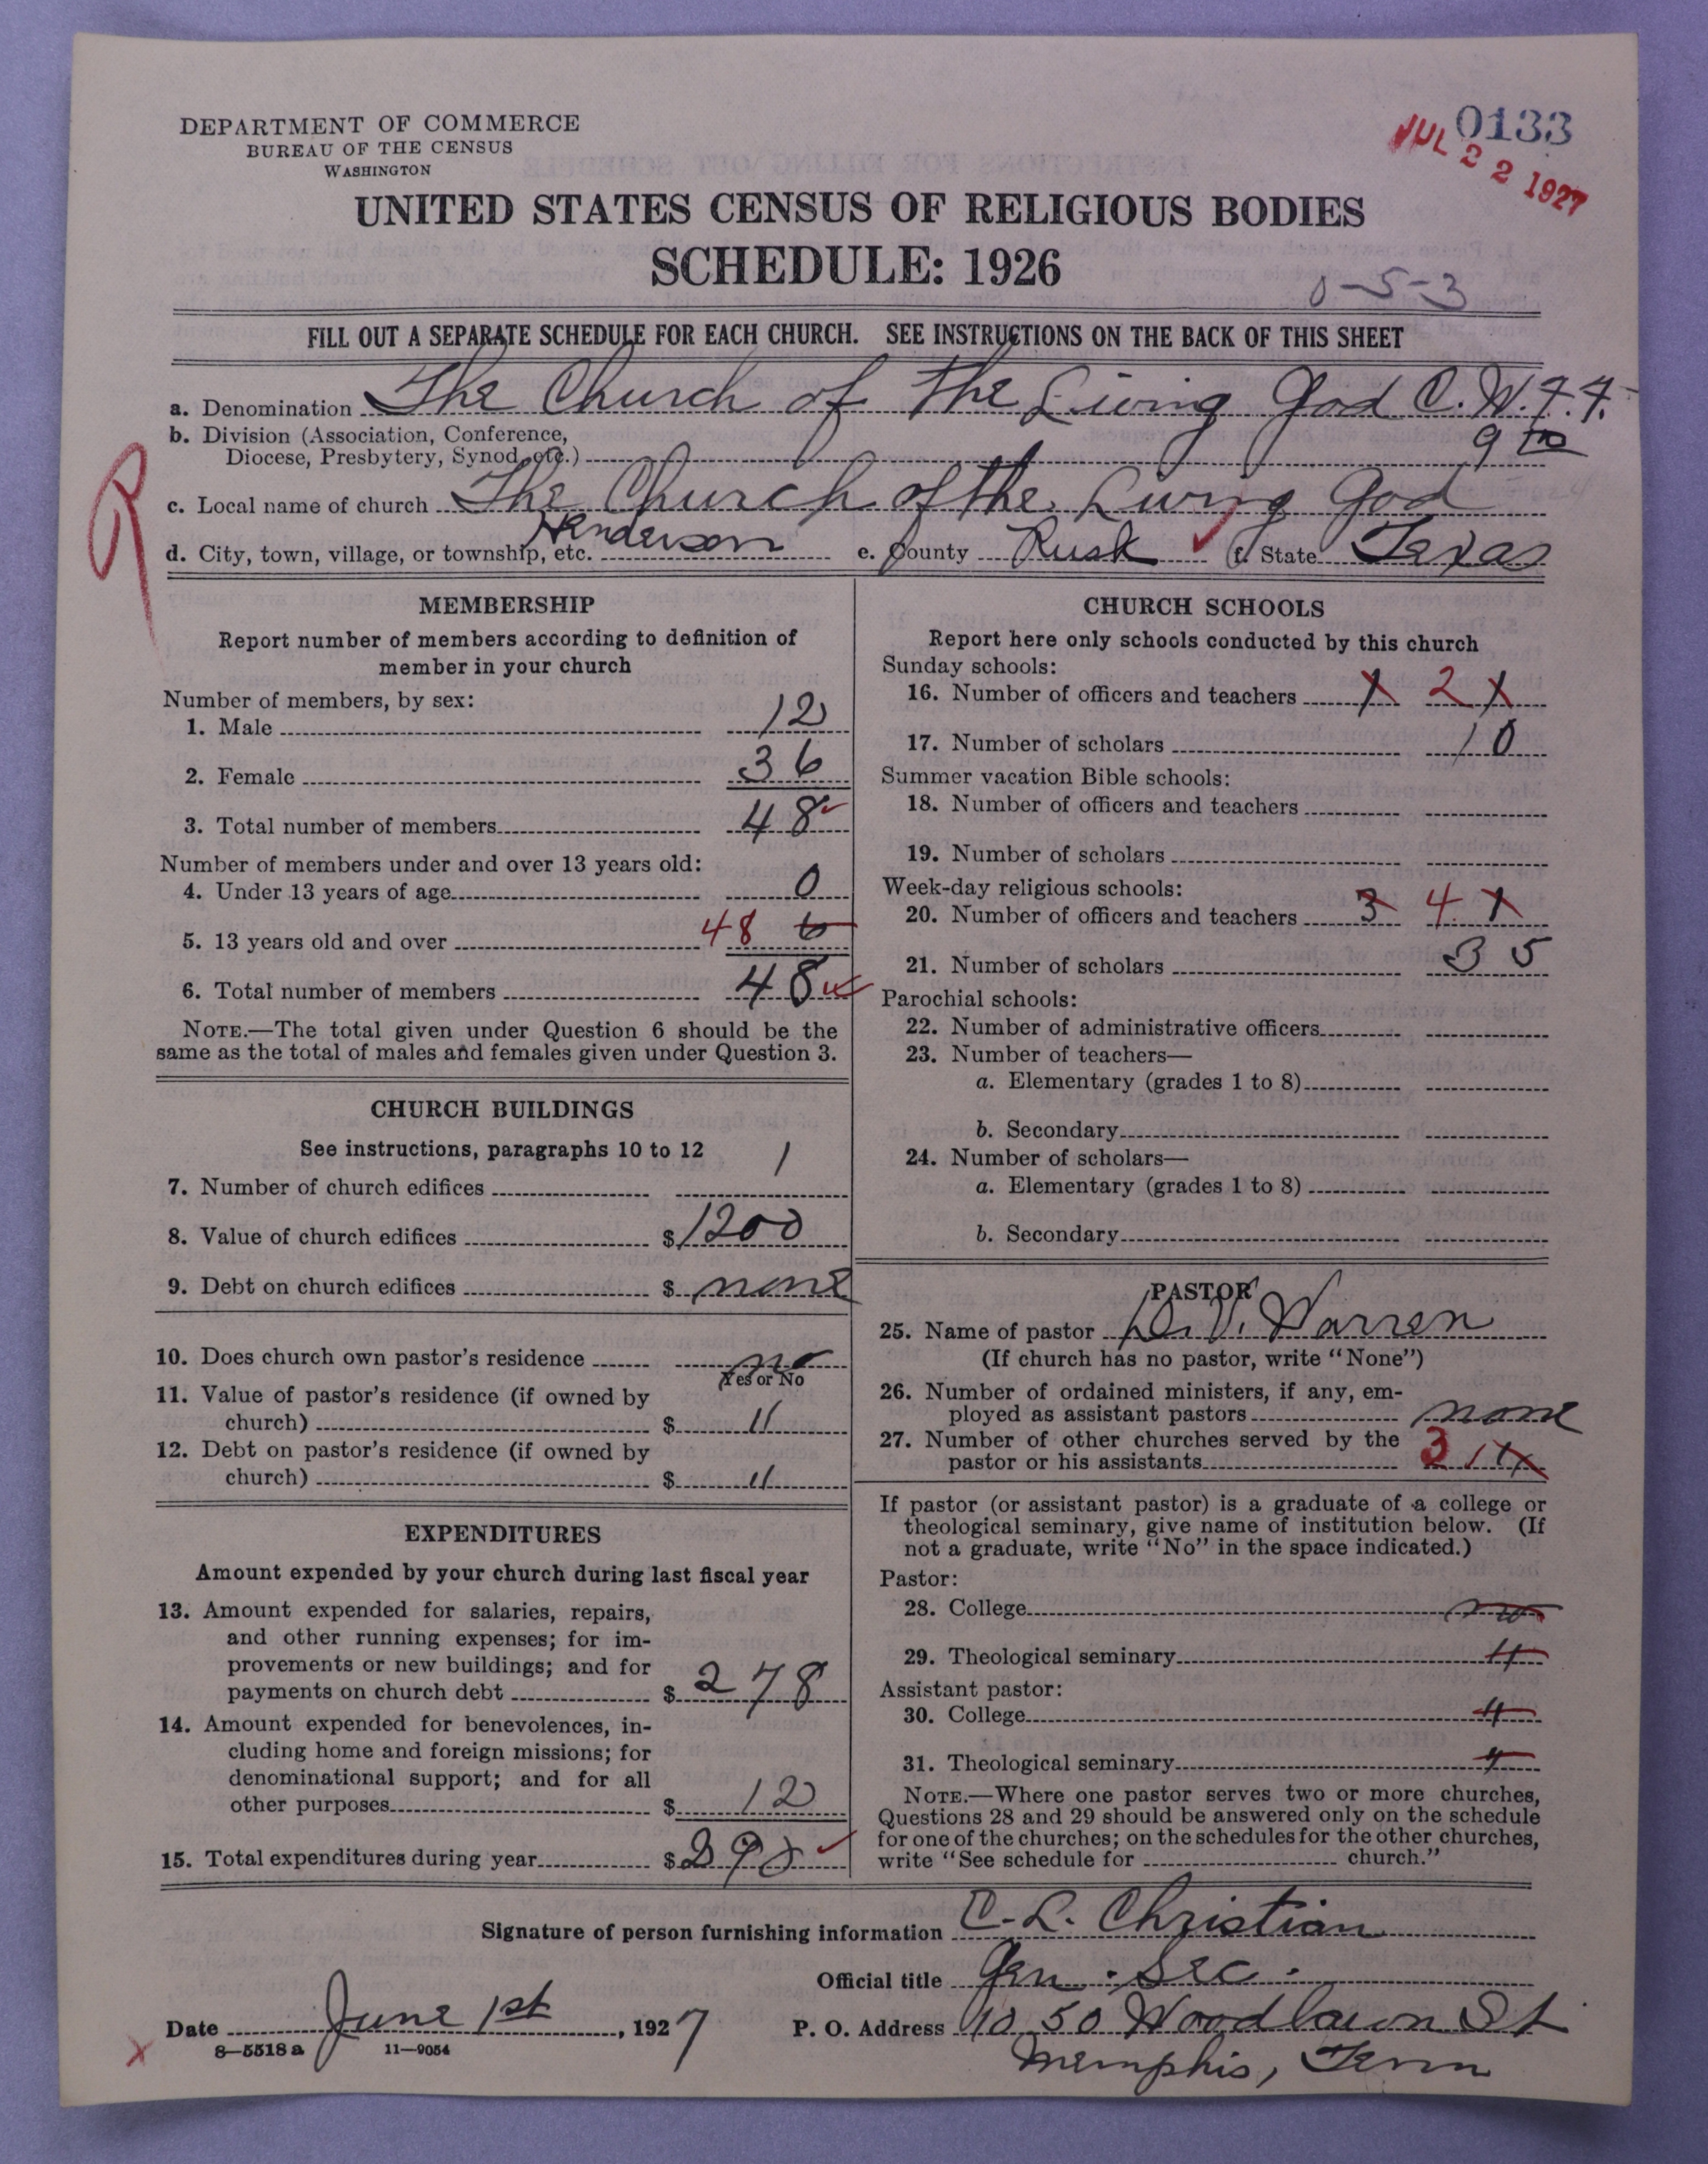 DEPARTMENT OF COMMERCE
BUREAU OF THE CENSUS
WASHINGTON
0133
JUL 22 1927
UNITED STATES CENSUS OF RELIGIOUS BODIES
SCHEDULE: 1926
0-5-3
FILL OUT A SEPARATE SCHEDULE FOR EACH CHURCH. SEE INSTRUCTIONS ON THE BACK OF THIS SHEET
a. Denomination The Church of the Living God C. W. F. F.
b. Division (Association, Conference,
Diocese, Presbytery, Synod, etc.) 9
c. Local name of church The Church of the Living God
d. City, town, village, or township, etc. Henderson e. County Rusk f. State Texas
R
MEMBERSHIP
Report number of members according to definition of
member in your church
Number of members, by sex:
1. Male 12
2. Female 36
3. Total number of members 48
Number of members under and over 13 years old:
4. Under 13 years of age 0
5. 13 years old and over 48 6
6. Total number of members 48
NOTE.—The total given under Question 6 should be the
same as the total of males and females given under Question 3.
CHURCH BUILDINGS
See instructions, paragraphs 10 to 12
7. Number of church edifices 1
8. Value of church edifices $1200
9. Debt on church edifices $ none
10. Does church own pastor's residence no
Yes or No
11. Value of pastor's residence (if owned by
church) $ "
12. Debt on pastor's residence (if owned by
church) $ "
EXPENDITURES
Amount expended by your church during last fiscal year
13. Amount expended for salaries, repairs,
and other running expenses; for im-
provements or new buildings; and for
payments on church debt $ 278
14. Amount expended for benevolences, in-
cluding home and foreign missions; for
denominational support; and for all
other purposes $ 12
15. Total expenditures during year $
CHURCH SCHOOLS
Report here only schools conducted by this church
Sunday schools:
16. Number of officers and teachers 1 2 1
17. Number of scholars 10
Summer vacation Bible schools:
18. Number of officers and teachers
19. Number of scholars
Week-day religious schools:
20. Number of officers and teachers 3 4 1
21. Number of scholars 35
Parochial schools:
22. Number of administrative officers
23. Number of teachers—
a. Elementary (grades 1 to 8)
b. Secondary
24. Number of scholars—
a. Elementary (grades 1 to 8)
b. Secondary
PASTOR
25. Name of pastor V. Warren
(If church has no pastor, write "None")
26. Number of ordained ministers, if any, em-
ployed as assistant pastors none
27. Number of other churches served by the
pastor or his assistants 3
If pastor (or assistant pastor) is a graduate of a college or
theological seminary, give name of institution below. (If
not a graduate, write "No" in the space indicated.)
Pastor:
28. College no
29. Theological seminary "
Assistant pastor:
30. College "
31. Theological seminary "
NOTE.—Where one pastor serves two or more churches,
Questions 28 and 29 should be answered only on the schedule
for one of the churches; on the schedules for the other churches,
write "See schedule for church."
Signature of person furnishing information C. L. Christian
Official title Gen. Sec.
Date June 1st, 1927
P. O. Address 1050 Woodlawn St
Memphis, Tenn
8—5518a 11—9054